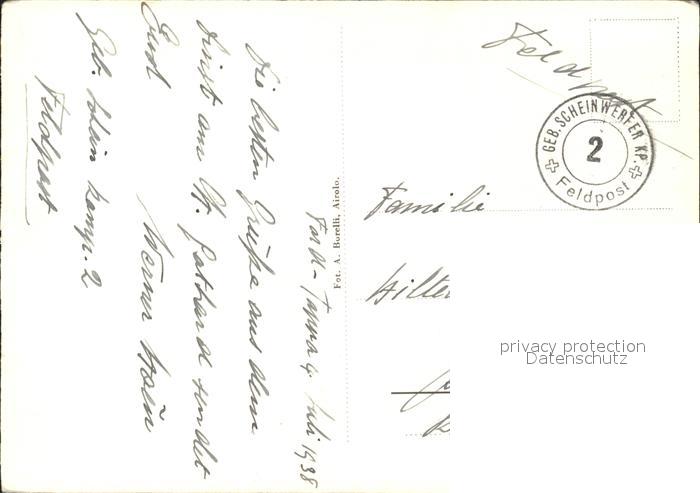 Juli 1938
Die besten Grüsse aus dem
Dienst am St. Gotthard sendet
Euch Werner
Geb. Schein Komp. 2
Feldpost
Fot. A. Borelli, Airolo.
Feldpost
GEB. SCHEINWERFER KP.
2
Feldpost
Familie
privacy protection
Datenschutz